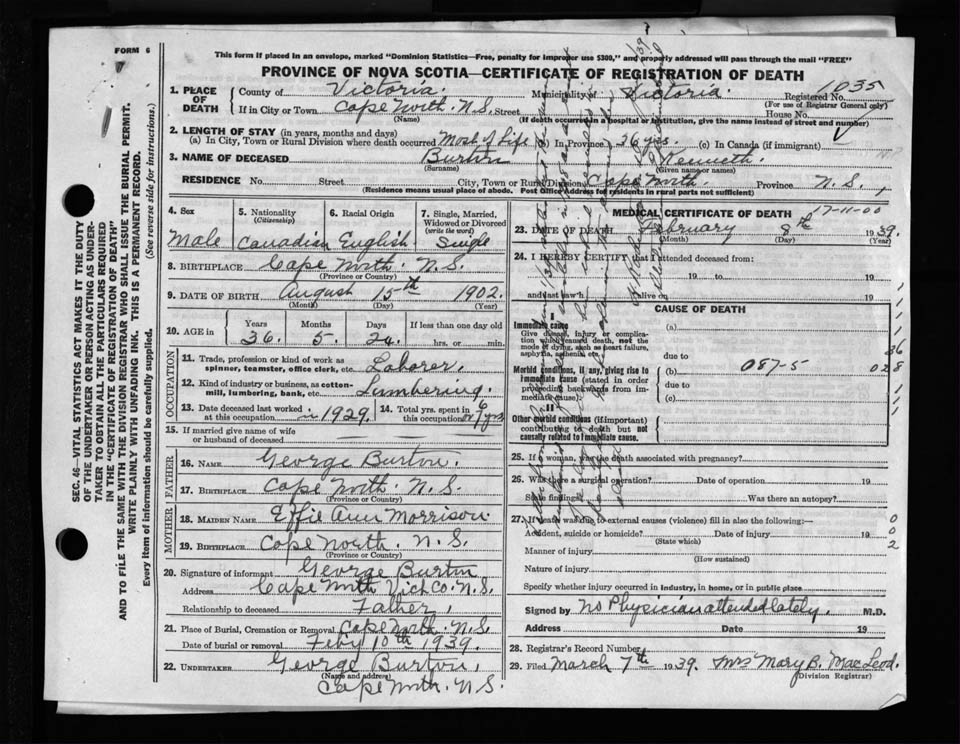 FORM 6
This form if placed in an envelope, marked "Dominion Statistics—Free, penalty for improper use $300," and properly addressed will pass through the mail "FREE"
PROVINCE OF NOVA SCOTIA—CERTIFICATE OF REGISTRATION OF DEATH
1. PLACE OF DEATH County of Victoria. Municipality of Victoria. Registered No. 1035
(For use of Registrar General only)
If in City or Town Cape North. N.S. Street House No.
(Name) (If death occurred in a hospital or institution, give the name instead of street and number)
2. LENGTH OF STAY (in years, months and days)
(a) In City, Town or Rural Division where death occurred Most of Life In Province 36 yrs. (c) In Canada (if immigrant)
3. NAME OF DECEASED Burton Kenneth.
(Surname) (Given name or names)
RESIDENCE No. Street City, Town or Rural Division Cape North. Province N.S.
(Residence means usual place of abode. Post Office Address for residents in rural parts not sufficient)
4. Sex Male
5. Nationality (Citizenship) Canadian
6. Racial Origin English
7. Single, Married, Widowed or Divorced (write the word) Single
8. BIRTHPLACE Cape North. N.S.
(Province or Country)
9. DATE OF BIRTH August 15th 1902.
(Month) (Day) (Year)
10. AGE in Years Months Days If less than one day old
36. 5. 24. hrs. or min.
OCCUPATION
11. Trade, profession or kind of work as spinner, teamster, office clerk, etc. Laborer.
12. Kind of industry or business, as cotton-mill, lumbering, bank, etc. Lumbering.
13. Date deceased last worked at this occupation in 1929.
14. Total yrs. spent in this occupation 6 or 7 yrs
15. If married give name of wife or husband of deceased
FATHER
16. NAME George Burton.
17. BIRTHPLACE Cape North. N.S.
(Province or Country)
MOTHER
18. MAIDEN NAME Effie Ann Morrison
19. BIRTHPLACE Cape North. N.S.
(Province or Country)
20. Signature of informant George Burton
Address Cape North Vict Co. N.S.
Relationship to deceased Father.
21. Place of Burial, Cremation or Removal Cape North. N.S.
Date of burial or removal Feby 10th 1939.
22. UNDERTAKER George Burton,
(Name and address)
Cape North. N.S.
MEDICAL CERTIFICATE OF DEATH 17-11-00
23. DATE OF DEATH February 8th 1939.
(Month) (Day) (Year)
24. I HEREBY CERTIFY that I attended deceased from:
19 to 19
and last saw h alive on 19
CAUSE OF DEATH
I
Immediate cause (a)
Give disease, injury or complication which caused death, not the mode of dying, such as heart failure, asphyxia, asthenia, etc.
due to 36
Morbid conditions, if any, giving rise to immediate cause (stated in order proceeding backwards from immediate cause).
(b) 087-5 028
due to
(c)
II
Other morbid conditions (if important) contributing to death but not causally related to immediate cause.
25. If a woman, was the death associated with pregnancy?
26. Was there a surgical operation? Date of operation 19
State findings Was there an autopsy?
27. If death was due to external causes (violence) fill in also the following:— 0
Accident, suicide or homicide? Date of injury 19 0
(State which) 2
Manner of injury
(How sustained)
Nature of injury
Specify whether injury occurred in industry, in home, or in public place
Signed by No Physician attended lately. M.D.
Address Date 19
28. Registrar's Record Number
29. Filed March 7th 1939. Mrs Mary B. MacLeod.
(Division Registrar)
SEC. 46—VITAL STATISTICS ACT MAKES IT THE DUTY
OF THE UNDERTAKER OR PERSON ACTING AS UNDER-
TAKER TO OBTAIN ALL THE PARTICULARS REQUIRED
IN THE "CERTIFICATE OF REGISTRATION OF DEATH"
AND TO FILE THE SAME WITH THE DIVISION REGISTRAR WHO SHALL ISSUE THE BURIAL PERMIT.
WRITE PLAINLY WITH UNFADING INK. THIS IS A PERMANENT RECORD.
Every item of information should be carefully supplied. (See reverse side for instructions.)